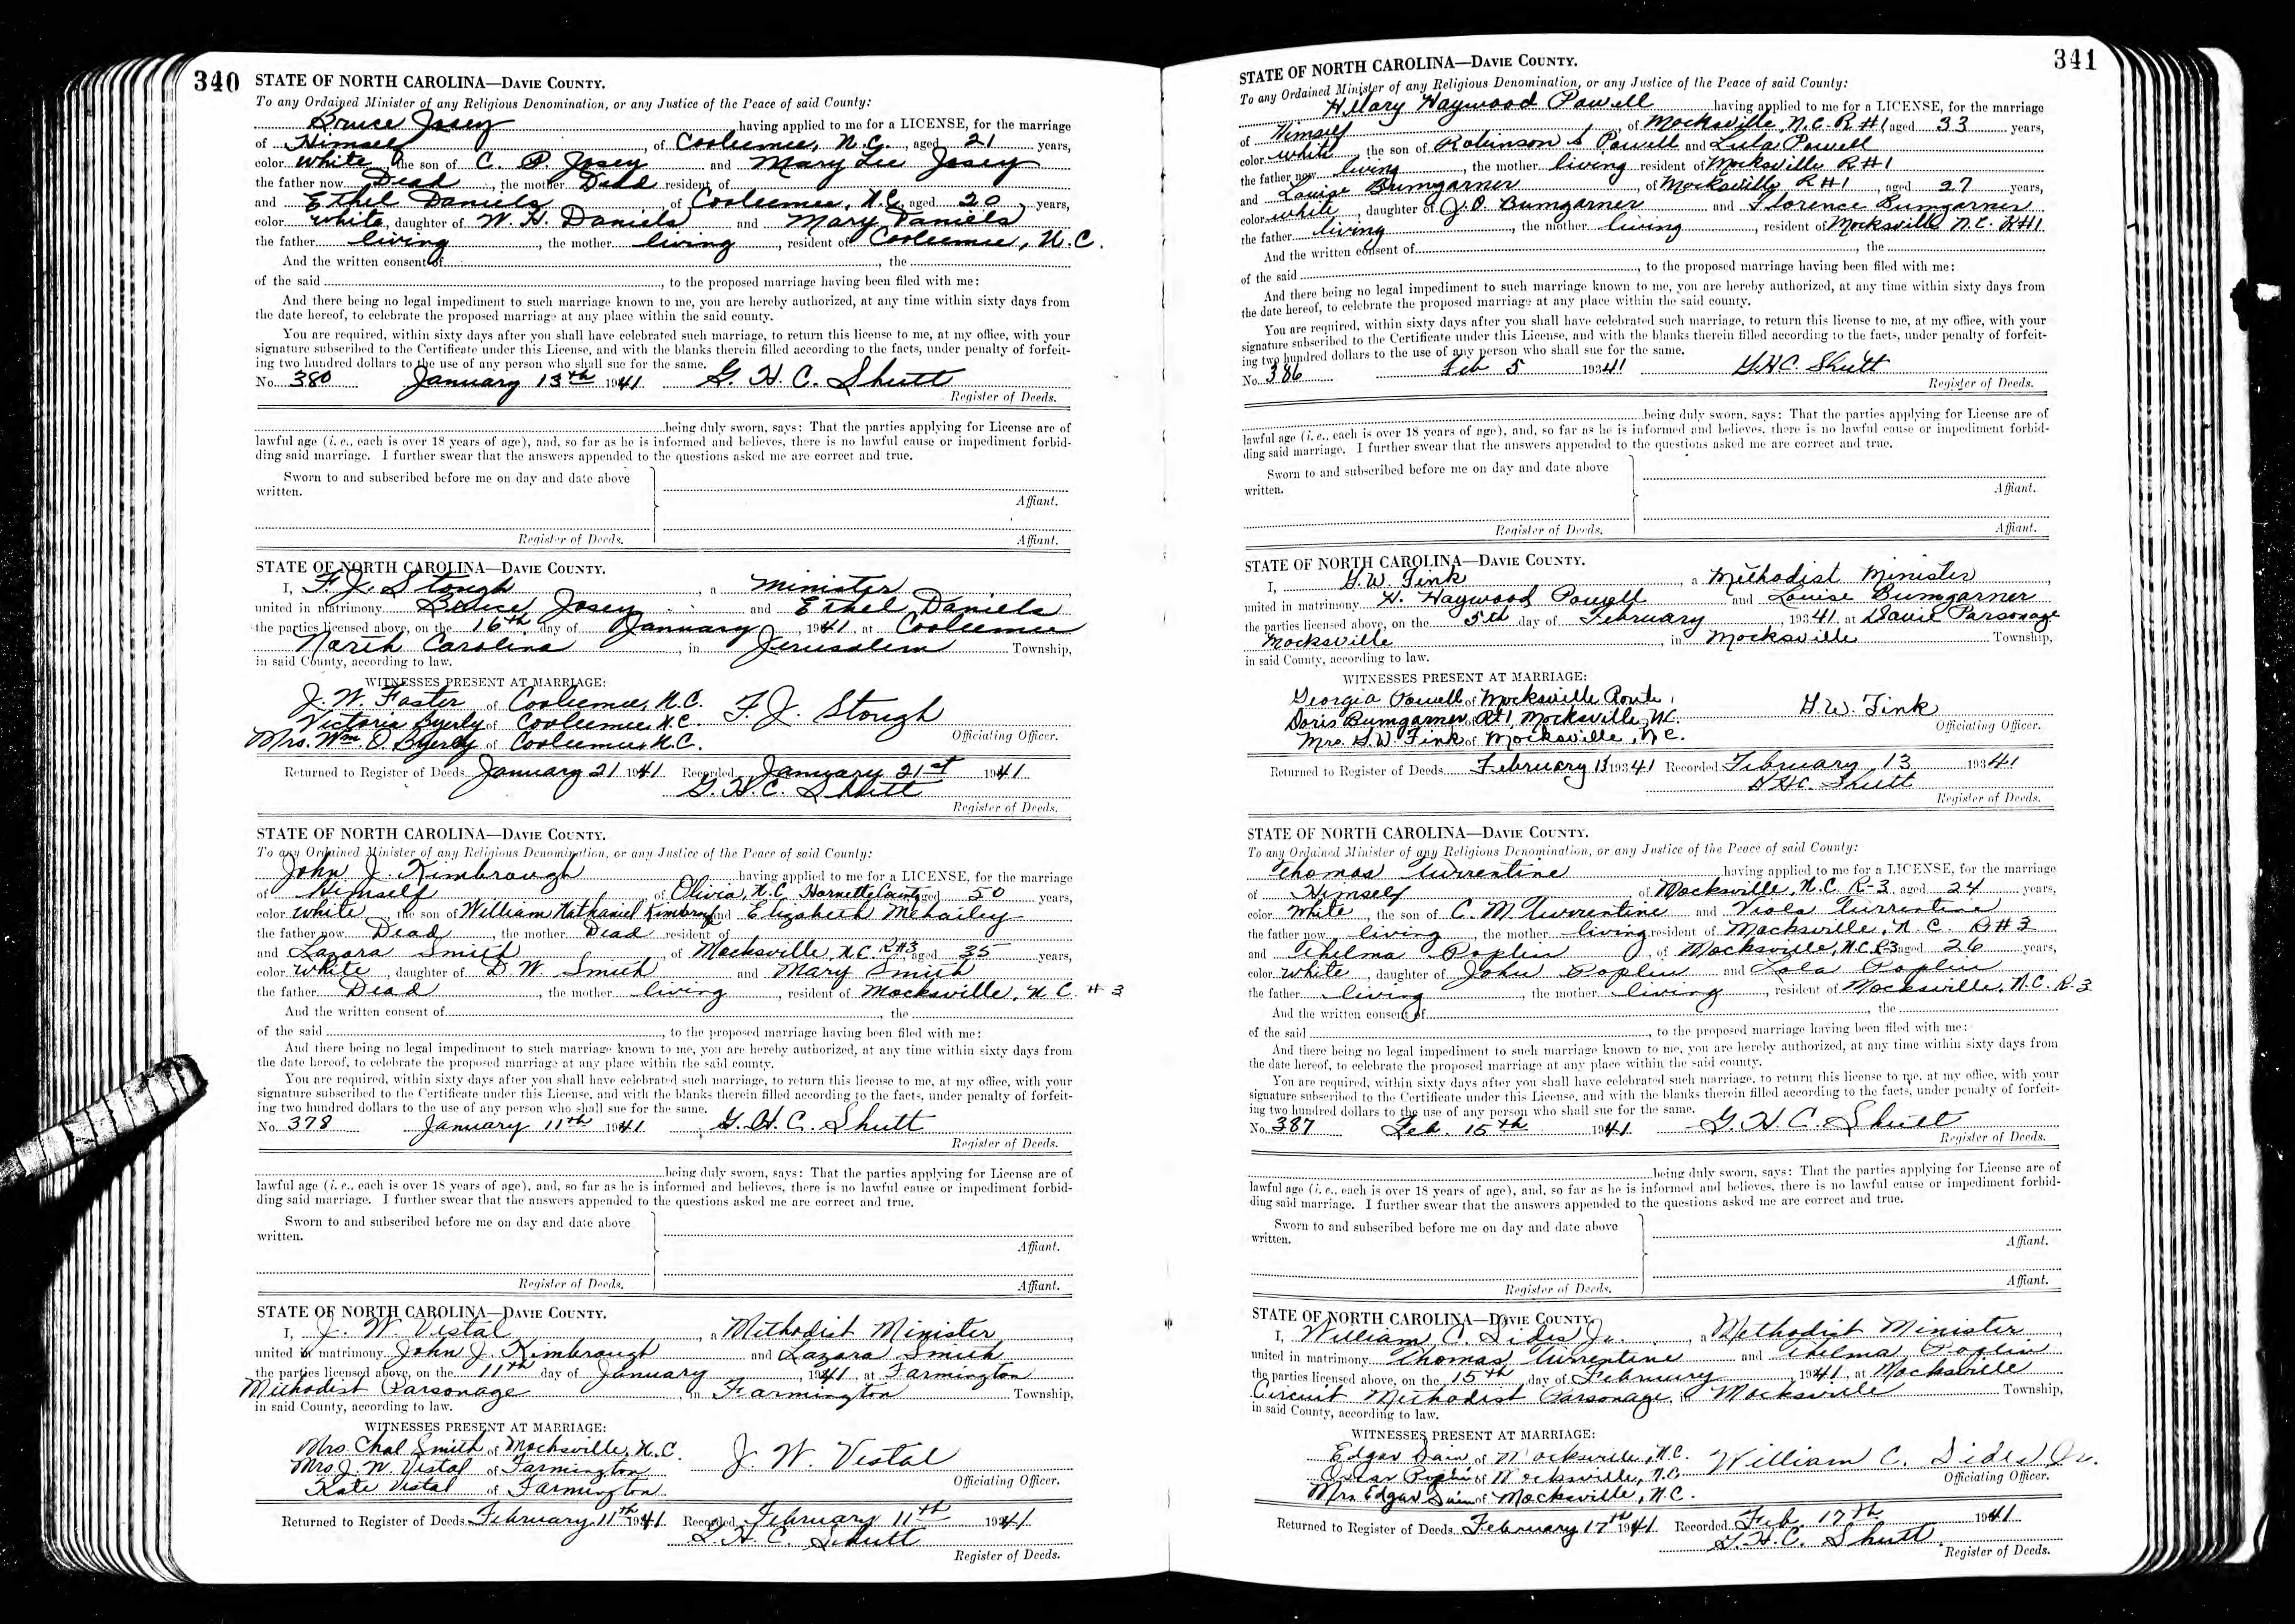 340
STATE OF NORTH CAROLINA—DAVIE COUNTY.
To any Ordained Minister of any Religious Denomination, or any Justice of the Peace of said County:
Bruce Josey having applied to me for a LICENSE, for the marriage
of Himself, of Cooleemee, N.C., aged 21 years,
color white the son of C. P. Josey and Mary Lee Josey
the father now Dead, the mother Dead resident of
and Ethel Daniels of Cooleemee, N.C. aged 20, years,
color white, daughter of W. H. Daniels and Mary Daniels
the father living, the mother living, resident of Cooleemee, N.C.
And the written consent of, the
of the said, to the proposed marriage having been filed with me:
And there being no legal impediment to such marriage known to me, you are hereby authorized, at any time within sixty days from
the date hereof, to celebrate the proposed marriage at any place within the said county.
You are required, within sixty days after you shall have celebrated such marriage, to return this license to me, at my office, with your
signature subscribed to the Certificate under this License, and with the blanks therein filled according to the facts, under penalty of forfeit-
ing two hundred dollars to the use of any person who shall sue for the same.
No. 380 January 13th 1941 G. H. C. Shutt
Register of Deeds.
being duly sworn, says: That the parties applying for License are of
lawful age (i. e., each is over 18 years of age), and, so far as he is informed and believes, there is no lawful cause or impediment forbid-
ding said marriage. I further swear that the answers appended to the questions asked me are correct and true.
Sworn to and subscribed before me on day and date above
written.
Affiant.
Register of Deeds. Affiant.
STATE OF NORTH CAROLINA—DAVIE COUNTY.
I, F. J. Stough, a Minister
united in matrimony Bruce Josey and Ethel Daniels
the parties licensed above, on the 16th day of January, 1941 at Cooleemee
North Carolina, in Jerusalem Township,
in said County, according to law.
WITNESSES PRESENT AT MARRIAGE:
J. W. Foster of Cooleemee, N.C.
Victoria Byerly of Cooleemee N.C. F. J. Stough
Mrs. Wm. O. Byerly of Cooleemee N.C. Officiating Officer.
Returned to Register of Deeds January 21 1941 Recorded January 21st 1941
G. H. C. Shutt
Register of Deeds.
STATE OF NORTH CAROLINA—DAVIE COUNTY.
To any Ordained Minister of any Religious Denomination, or any Justice of the Peace of said County:
John J. Kimbrough having applied to me for a LICENSE, for the marriage
of Himself of Olivia, N.C. Harnette County aged 50 years,
color white, the son of William Nathaniel Kimbrough and Elizabeth McHailey
the father now Dead, the mother Dead resident of
and Lazara Smith, of Mocksville, N.C. R#3, aged 35 years,
color white, daughter of D W Smith and Mary Smith
the father Dead, the mother living, resident of Mocksville, N.C. #3
And the written consent of, the
of the said, to the proposed marriage having been filed with me:
And there being no legal impediment to such marriage known to me, you are hereby authorized, at any time within sixty days from
the date hereof, to celebrate the proposed marriage at any place within the said county.
You are required, within sixty days after you shall have celebrated such marriage, to return this license to me, at my office, with your
signature subscribed to the Certificate under this License, and with the blanks therein filled according to the facts, under penalty of forfeit-
ing two hundred dollars to the use of any person who shall sue for the same.
No. 378 January 11th 1941 G. H. C. Shutt
Register of Deeds.
being duly sworn, says: That the parties applying for License are of
lawful age (i. e., each is over 18 years of age), and, so far as he is informed and believes, there is no lawful cause or impediment forbid-
ding said marriage. I further swear that the answers appended to the questions asked me are correct and true.
Sworn to and subscribed before me on day and date above
written.
Affiant.
Register of Deeds. Affiant.
STATE OF NORTH CAROLINA—DAVIE COUNTY.
I, J. W. Vestal, a Methodist Minister,
united in matrimony John J. Kimbrough and Lazara Smith
the parties licensed above, on the 11th day of January, 1941 at Farmington
Methodist Parsonage, in Farmington Township,
in said County, according to law.
WITNESSES PRESENT AT MARRIAGE:
Mrs. Chal Smith of Mocksville, N.C.
Mrs J. W. Vestal of Farmington J. W. Vestal
Kate Vestal of Farmington Officiating Officer.
Returned to Register of Deeds February 11th 1941 Recorded February 11th 1941
G. H. C. Shutt
Register of Deeds.
341
STATE OF NORTH CAROLINA—DAVIE COUNTY.
To any Ordained Minister of any Religious Denomination, or any Justice of the Peace of said County:
Hilary Haywood Powell having applied to me for a LICENSE, for the marriage
of Himself, of Mocksville, N.C. R#1 aged 33 years,
color white, the son of Robinson S Powell and Lula Powell
the father now living, the mother living resident of Mocksville R#1
and Louise Bumgarner, of Mocksville, R#1, aged 27 years,
color white, daughter of J. O. Bumgarner and Florence Bumgarner
the father living, the mother living, resident of Mocksville N.C. R#1
And the written consent of, the
of the said, to the proposed marriage having been filed with me:
And there being no legal impediment to such marriage known to me, you are hereby authorized, at any time within sixty days from
the date hereof, to celebrate the proposed marriage at any place within the said county.
You are required, within sixty days after you shall have celebrated such marriage, to return this license to me, at my office, with your
signature subscribed to the Certificate under this License, and with the blanks therein filled according to the facts, under penalty of forfeit-
ing two hundred dollars to the use of any person who shall sue for the same.
No. 386 Feb 5 19341 G.H.C. Shutt
Register of Deeds.
being duly sworn, says: That the parties applying for License are of
lawful age (i. e., each is over 18 years of age), and, so far as he is informed and believes, there is no lawful cause or impediment forbid-
ding said marriage. I further swear that the answers appended to the questions asked me are correct and true.
Sworn to and subscribed before me on day and date above
written.
Affiant.
Register of Deeds. Affiant.
STATE OF NORTH CAROLINA—DAVIE COUNTY.
I, G. W. Fink, a Methodist Minister,
united in matrimony H. Haywood Powell and Louise Bumgarner
the parties licensed above, on the 5th day of February, 19341 at Davie Parsonage
Mocksville, in Mocksville Township,
in said County, according to law.
WITNESSES PRESENT AT MARRIAGE:
Georgia Powell of Mocksville Route 1
Doris Bumgarner Rt 1 Mocksville, N.C. G. W. Fink
Mrs G. W. Fink of Mocksville, N.C. Officiating Officer.
Returned to Register of Deeds February 13 19341 Recorded February 13 19341
G.H.C. Shutt
Register of Deeds.
STATE OF NORTH CAROLINA—DAVIE COUNTY.
To any Ordained Minister of any Religious Denomination, or any Justice of the Peace of said County:
Thomas Turrentine having applied to me for a LICENSE, for the marriage
of Himself of Mocksville, N.C. R-3 aged 24 years,
color white, the son of C. M. Turrentine and Viola Turrentine
the father now living, the mother living resident of Mocksville, N.C. R#3
and Thelma Poplin, of Mocksville, N.C. R-3 aged 26 years,
color white, daughter of John Poplin and Lola Poplin
the father living, the mother living, resident of Mocksville, N.C. R-3
And the written consent of, the
of the said, to the proposed marriage having been filed with me:
And there being no legal impediment to such marriage known to me, you are hereby authorized, at any time within sixty days from
the date hereof, to celebrate the proposed marriage at any place within the said county.
You are required, within sixty days after you shall have celebrated such marriage, to return this license to me, at my office, with your
signature subscribed to the Certificate under this License, and with the blanks therein filled according to the facts, under penalty of forfeit-
ing two hundred dollars to the use of any person who shall sue for the same.
No. 387 Feb. 15th 1941 G. H. C. Shutt
Register of Deeds.
being duly sworn, says: That the parties applying for License are of
lawful age (i. e., each is over 18 years of age), and, so far as he is informed and believes, there is no lawful cause or impediment forbid-
ding said marriage. I further swear that the answers appended to the questions asked me are correct and true.
Sworn to and subscribed before me on day and date above
written.
Affiant.
Register of Deeds. Affiant.
STATE OF NORTH CAROLINA—DAVIE COUNTY.
I, William C. Sides Jr., a Methodist Minister,
united in matrimony Thomas Turrentine and Thelma Poplin
the parties licensed above, on the 15th day of February 1941, at Mocksville
Circuit Methodist Parsonage, in Mocksville Township,
in said County, according to law.
WITNESSES PRESENT AT MARRIAGE:
Edgar of Mocksville, N.C.
Oscar Poplin of Mocksville, N.C. William C. Sides Jr.
Mrs Edgar of Mocksville, N.C. Officiating Officer.
Returned to Register of Deeds February 17th 1941 Recorded Feb 17th 1941
G. H. C. Shutt
Register of Deeds.